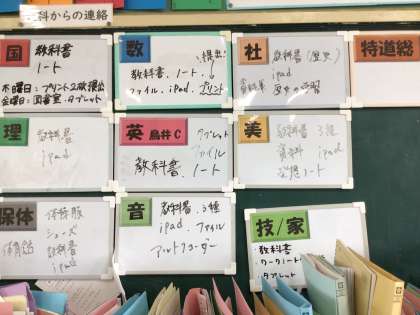 科からの連絡
国
教科書
ノート
木曜日:プリント2枚提出
金曜日:図書室・タブレット
数
提出!
教科書、ノート、
ファイル、iPad、プリント
社
教科書(歴史)
iPad
歴史の学習
特道総
理
教科書
iPad
英
鳥井C
タブレット
ファイル
教科書、ノート
美
教科書 3種
資料 iPad
ノート
保体
体育服
シューズ
教科書
iPad
体育館
音
教科書 3種
iPad、ファイル
アルトリコーダー
技/家
教科書
・ワークノート
・タブレット